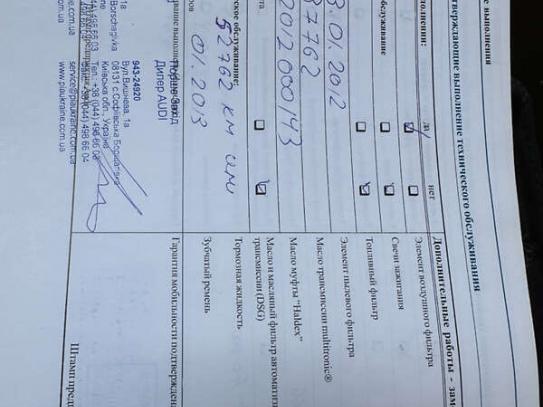 ие выполнения
тверждающие выполнение технического обслуживания
ыполнении:
да
нет
3.01.2012
обслуживание
37762
2012 000143
та
еское обслуживание:
52762 км
01.2013
943-24920
Порше Захід
Дилер AUDI
Вул.Вишнева, 1а
08131 с.Софіївська Борщагівка
Київська обл., Україна
Тел.: +38 (044) 496 66 03
+38 (044) 496 66 04
service@piaukraine.com.ua
www.piaukraine.com.ua
Дополнительные работы - зам
Элемент воздушного фильтра
Свечи зажигания
Топливный фильтр
Элемент пылевого фильтра
Масло трансмиссии multitronic®
Масло муфты "Haldex"
Масло и масляный фильтр автоматич
трансмиссии (DSG)
Тормозная жидкость
Зубчатый ремень
Гарантия мобильности подтвержден
Штамп предп